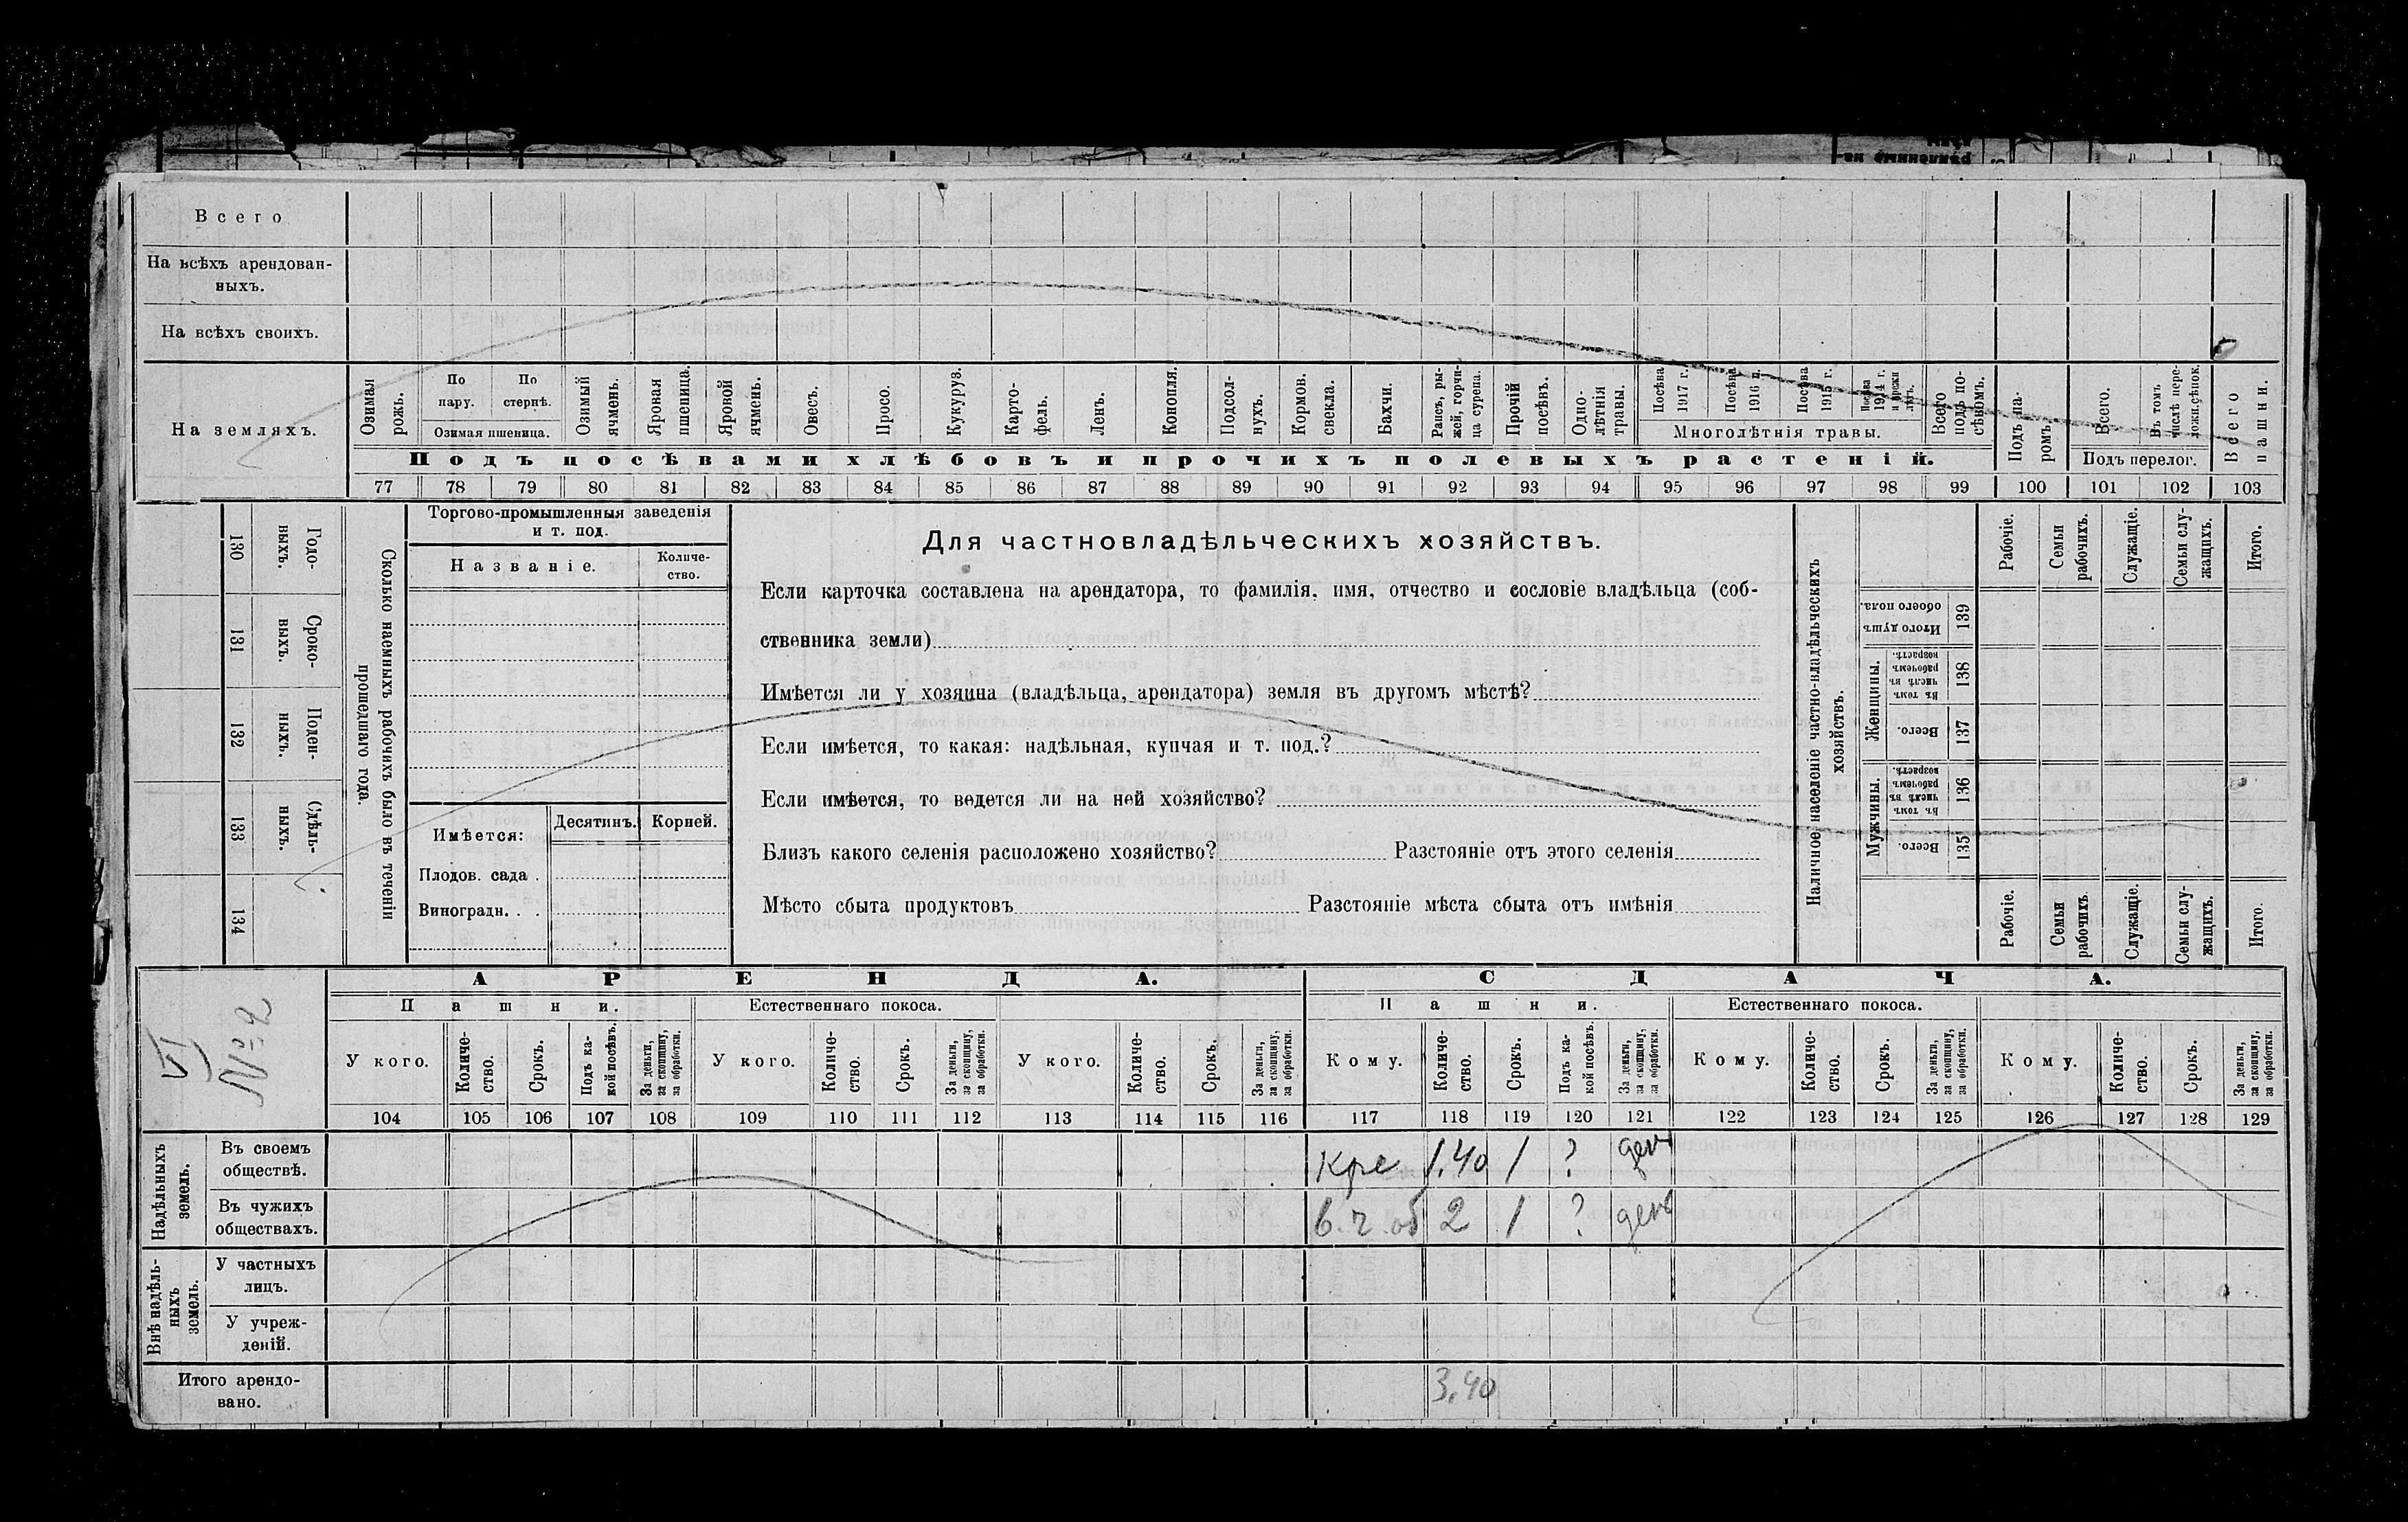 Всего
На всѣхъ арендован-
ныхъ.
На всѣхъ своихъ.
На земляхъ.
Озимая рожь.
По пару.
По стернѣ.
Озимая пшеница.
Озимый ячмень.
Яровая пшеница.
Яровой ячмень.
Овесъ.
Просо.
Кукуруз.
Карто-
фель.
Ленъ.
Конопля.
Подсол-
нухъ.
Кормов.
свекла.
Бахчи.
Рапсъ, ры-
жей, горчи-
ца сурепа.
Прочій
посѣвъ.
Одно-
лѣтнія
травы.
Посѣва
1917 г.
Посѣва
1916 г.
Посѣва
1915 г.
Посѣва
1914 г.
и прежн
лѣтъ.
Многолѣтнія травы.
Всего
подъ по-
сѣвомъ.
Подъ па-
ромъ.
Всего.
Въ томъ
числѣ пере-
ложи.сѣнок.
Подъ перелог.
Всего
пашни.
Подъ посѣвами хлѣбовъ и прочихъ полевыхъ растеній.
77 78 79 80 81 82 83 84 85 86 87 88 89 90 91 92 93 94 95 96 97 98 99 100 101 102 103
Сколько наемныхъ рабочихъ было въ теченіи
прошедшаго года.
Годо-
выхъ.
130
Сроко-
выхъ.
131
Поден-
ныхъ.
132
Сдѣль-
ныхъ.
133
134
Торгово-промышленныя заведенія
и т. под.
Названіе.
Количе-
ство.
Имѣется:
Десятинъ.
Корней.
Плодов. сада .
Виноградн. . .
Для частновладѣльческихъ хозяйствъ.
Если карточка составлена на арендатора, то фамилія, имя, отчество и сословіе владѣльца (соб-
ственника земли)
Имѣется ли у хозяина (владѣльца, арендатора) земля въ другомъ мѣстѣ?
Если имѣется, то какая: надѣльная, купчая и т. под.?
Если имѣется, то ведется ли на ней хозяйство?
Близъ какого селенія расположено хозяйство? Разстояніе отъ этого селенія
Мѣсто сбыта продуктовъ Разстояніе мѣста сбыта отъ имѣнія
Наличное населеніе частно-владѣльческихъ
хозяйствъ.
Рабочіе.
Семьи
рабочихъ.
Служащіе.
Семьи слу-
жащихъ.
Итого.
Итого душъ
обоего пола.
139
Женщины.
Въ томъ
числѣ въ
рабочемъ
возрастѣ.
138
Всего.
137
Мужчины.
Въ томъ
числѣ въ
рабочемъ
возрастѣ.
136
Всего.
135
Рабочіе.
Семьи
рабочихъ
Служащіе.
Семьи слу-
жащихъ.
Итого.
VI
№ 2
АРЕНДА.
СДАЧА.
Пашни.
Естественнаго покоса.
Пашни.
Естественнаго покоса.
У кого.
Количе-
ство.
Срокъ.
Подъ ка-
кой посѣвъ.
За деньги,
за скопщину,
за обработки.
У кого.
Количе-
ство.
Срокъ.
За деньги,
за скопщину,
за обработки.
У кого.
Количе-
ство.
Срокъ.
За деньги,
за скопщину,
за обработки.
Кому.
Количе-
ство.
Срокъ.
Подъ ка-
кой посѣвъ.
За деньги,
за скопщину,
за обработки.
Кому.
Количе-
ство.
Срокъ.
За деньги,
за скопщину,
за обработки.
Кому.
Количе-
ство.
Срокъ.
За деньги,
за скопщину,
за обработки.
104 105 106 107 108 109 110 111 112 113 114 115 116 117 118 119 120 121 122 123 124 125 126 127 128 129
Надѣльныхъ
земель.
Въ своемъ
обществѣ.
Кре 1.40 1 ? ден
Въ чужихъ
обществахъ.
в. ч. об 2 1 ? ден
Внѣ надѣль-
ныхъ
земель.
У частныхъ
лицъ.
У учреж-
деній.
Итого арендо-
вано.
3.40